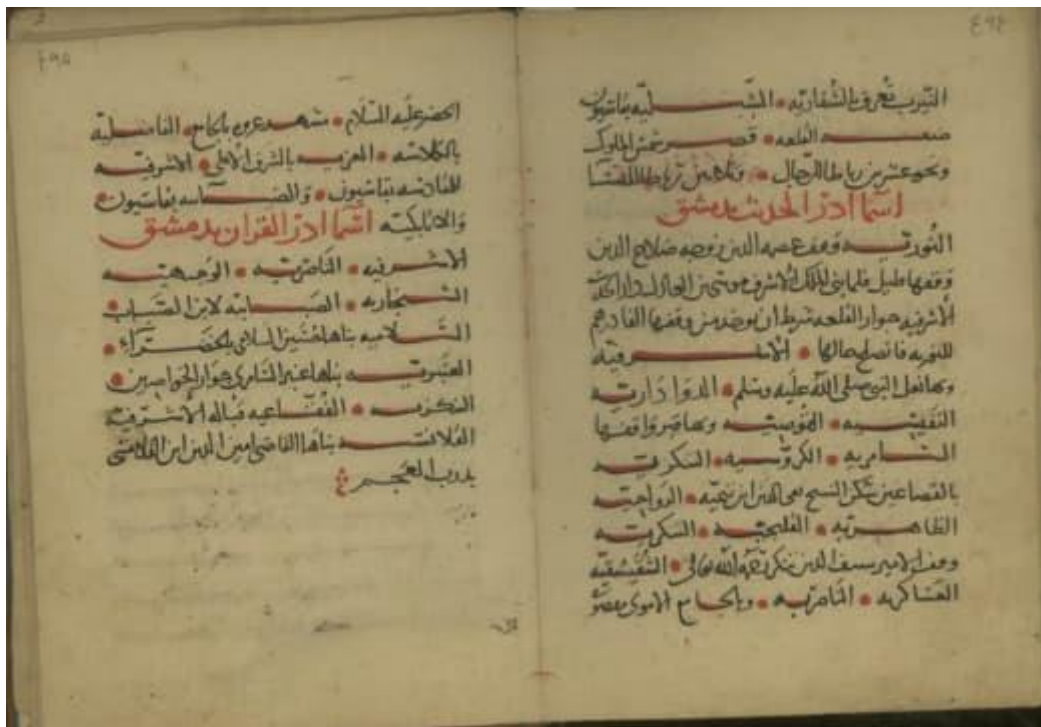 ٤٩٤
النيرب تعرف بالشقاريه • الشبليه بقاسيون
صفـه القلعه • قصر شمس الملوك
ونحو عشرين رباط للرجال • وثلاثين رباط للنسا
اسما ادر الحديث بدمشق
النوريه وقف عصمه الدين زوجه صلاح الدين
الأشرفيه جوار القلعه شرط ان
للنوريه فانصلح حالها • الاشرفيه
وبها نعل النبي صلى الله عليه وسلم • الدواداريه
النفيسيه • القوصيه وبها قبر واقفها
السامريه • الكروسيه • السكريه
بالقصاعين سكن الشيخ تقي الدين ابن تيميه • الرواحيه
الظاهريه • القليجيه • السكريه
وقف الامير سيف الدين تنكز رحمه الله تعالى • الشقيشقيه
العساكريه • الناصريه • وبالجامع الاموي مقصوره
٤٩٥
الخضر عليه السلام • مشهد عروه بالجامع • الفاضليه
بالكلاسه • العزيه بالشرف الاعلى • الاشرفيه
المقادسه بقاسيون • والضيائيه بقاسيون •
والاتابكيه اسما ادر القران بدمشق
الاشرفيه • الناصريه • الوجيهيه
السنجاريه • الصبابيه لابن الصباب •
السلاميه بناها السلامي بالخضراء •
العنبريه بناها عنبر جوار الخواصين •
التنكزيه • الفقاعيه قباله الاشرفيه
القلانسيه بناها القاضي امين الدين ابن القلانسي
بدرب العجم